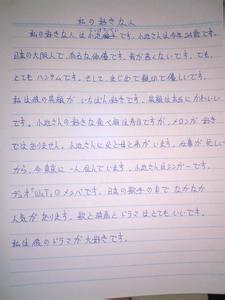 私の好きな人
私の好きな人は小池徹平です。小池さんは今年24歳です。
日本の大阪人で、有名な俳優です。背が高くないです。でも、
とてもハンサムです。そして、まじめで親切で優しいです。
私は彼の笑顔がいちばん好きです。笑顔は本当にかわいい
です。小池さんの好きな食べ物は寿司ですが、メロンが好き
ではありません。小池さんに父と母と弟がいます。仕事が忙しい
から、今東京に一人住んでいます。小池さんはシンガーです。
デュオ「WaT」のメンバです。日本の歌手の中でなかなか
人気があります。歌と映画とドラマはとてもいいです。
私は彼のドラマが大好きです。